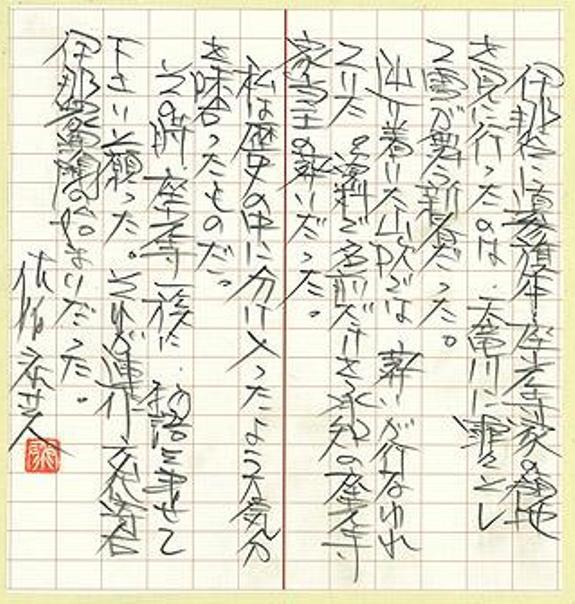 伊那谷に直参旗本・座光寺家の墓地
を見に行ったのは、天竜川に霏々とし
て雪が舞う新春だった。
辿り着いた山吹では、葬いが行なわれ
ていた。資料で名前だけを承知の座光寺
家当主の葬いだった。
私は歴史の中に分け入ったような気分
を味わったものだ。
その時、座光寺一族に、物語を書せて
下さいと願った。それが連作、交代寄合
伊那衆異聞の始まりだった。
佐伯泰英